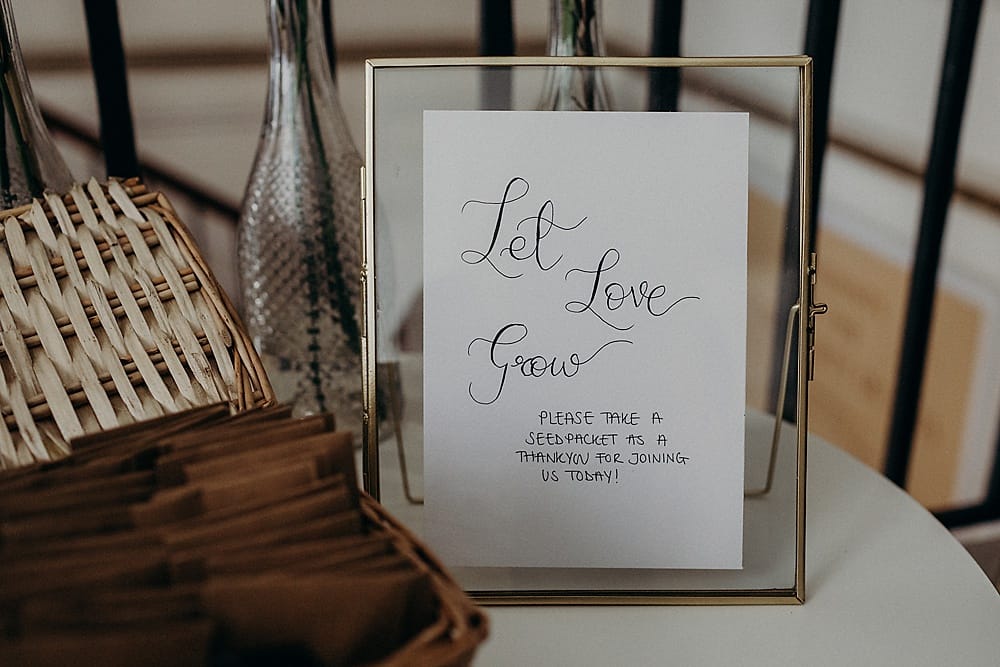 Let
Love
Grow
PLEASE TAKE A
SEEDPACKET AS A
THANKYOU FOR JOINING
US TODAY!